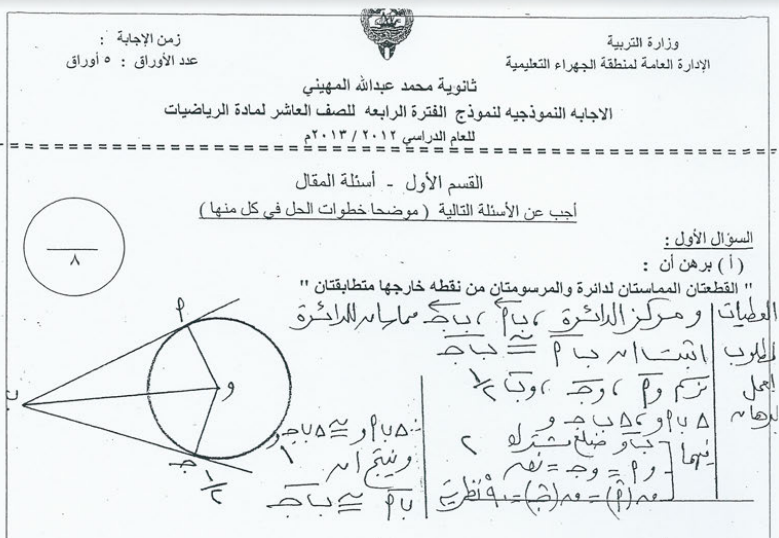 وزارة التربية
الإدارة العامة لمنطقة الجهراء التعليمية
زمن الإجابة :
عدد الأوراق : ٥ أوراق
ثانوية محمد عبدالله المهيني
الاجابه النموذجيه لنموذج الفترة الرابعه للصف العاشر لمادة الرياضيات
للعام الدراسي ٢٠١٢ / ٢٠١٣م
القسم الأول - أسئلة المقال
أجب عن الأسئلة التالية ( موضحا خطوات الحل في كل منها )
٨
السؤال الأول :
( أ ) برهن أن :
" القطعتان المماستان لدائرة والمرسومتان من نقطه خارجها متطابقتان "
المعطيات و مركز الدائرة ، ب م ، ب جـ مماسان للدائرة
المطلوب اثبت ان ب م ≅ ب جـ
العمل نرسم و م ، و جـ ، و ب ١/٢
البرهان Δ ب م و ، Δ ب جـ و
فيهما ب و ضلع مشترك ٢
و م = و جـ = نصـ
ن (م) = ن (جـ) = ٩٠ نظرية
∴ Δ ب م و ≅ Δ ب جـ و
١
وينتج ان
ب م ≅ ب جـ
م
و
ب
جـ
١/٢